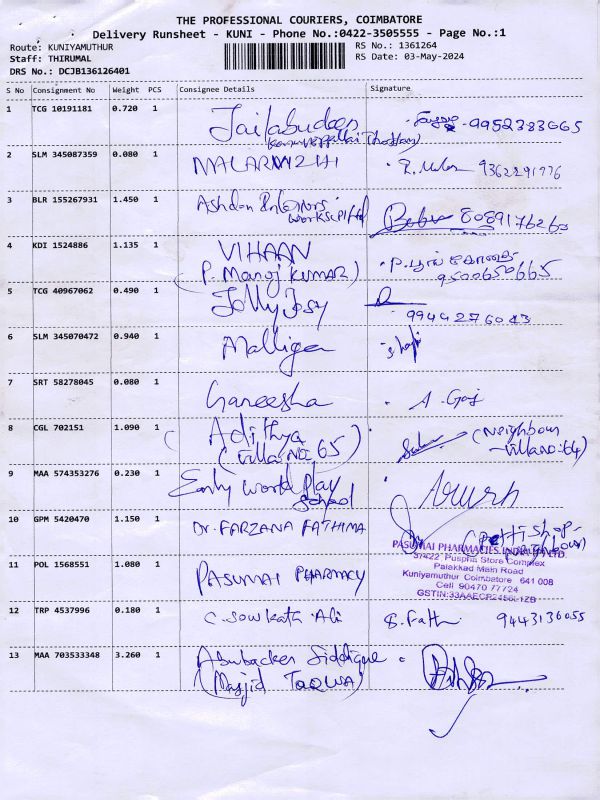 THE PROFESSIONAL COURIERS, COIMBATORE
Delivery Runsheet - KUNI - Phone No.:0422-3505555 - Page No.:1
Route: KUNIYAMUTHUR
Staff: THIRUMAL
DRS No.: DCJB136126401
RS No.: 1361264
RS Date: 03-May-2024
S No Consignment No Weight PCS Consignee Details Signature
1 TCG 10191181 0.720 1 Jailabudeen 9952383065
2 SLM 345087359 0.080 1 MALARVIZHI 9362291776
3 BLR 155267931 1.450 1 Ashdon Interiors
Works Pvt Ltd Babu 8089176263
4 KDI 1524886 1.135 1 VIHAAN
(P. Manoj KUMAR) 9500650665
5 TCG 40967062 0.490 1 Jolly Josy
9944276083
6 SLM 345070472 0.940 1 Malliga Shaji
7 SRT 58278045 0.080 1 Ganeesha
8 CGL 702151 1.090 1 Adithya
(Villa NO: 65) (Neighbour
Villa no: 64)
9 MAA 574353276 0.230 1 Early World Play
School
10 GPM 5420470 1.150 1 Dr. FARZANA FATHIMA (Petti shop-
neighbour)
PASUMAI PHARMACIES INDIA PVT LTD.
Pushpa Store Complex
Palakkad Main Road
Kuniyamuthur Coimbatore 641 008
Cell 90470 77724
11 POL 1568551 1.080 1 PASUMAI PHARMACY
12 TRP 4537996 0.180 1 C. Sowkath Ali S. Fath 9443136055
13 MAA 703533348 3.260 1 Abubacker Siddique
(Masjid TAQWA)